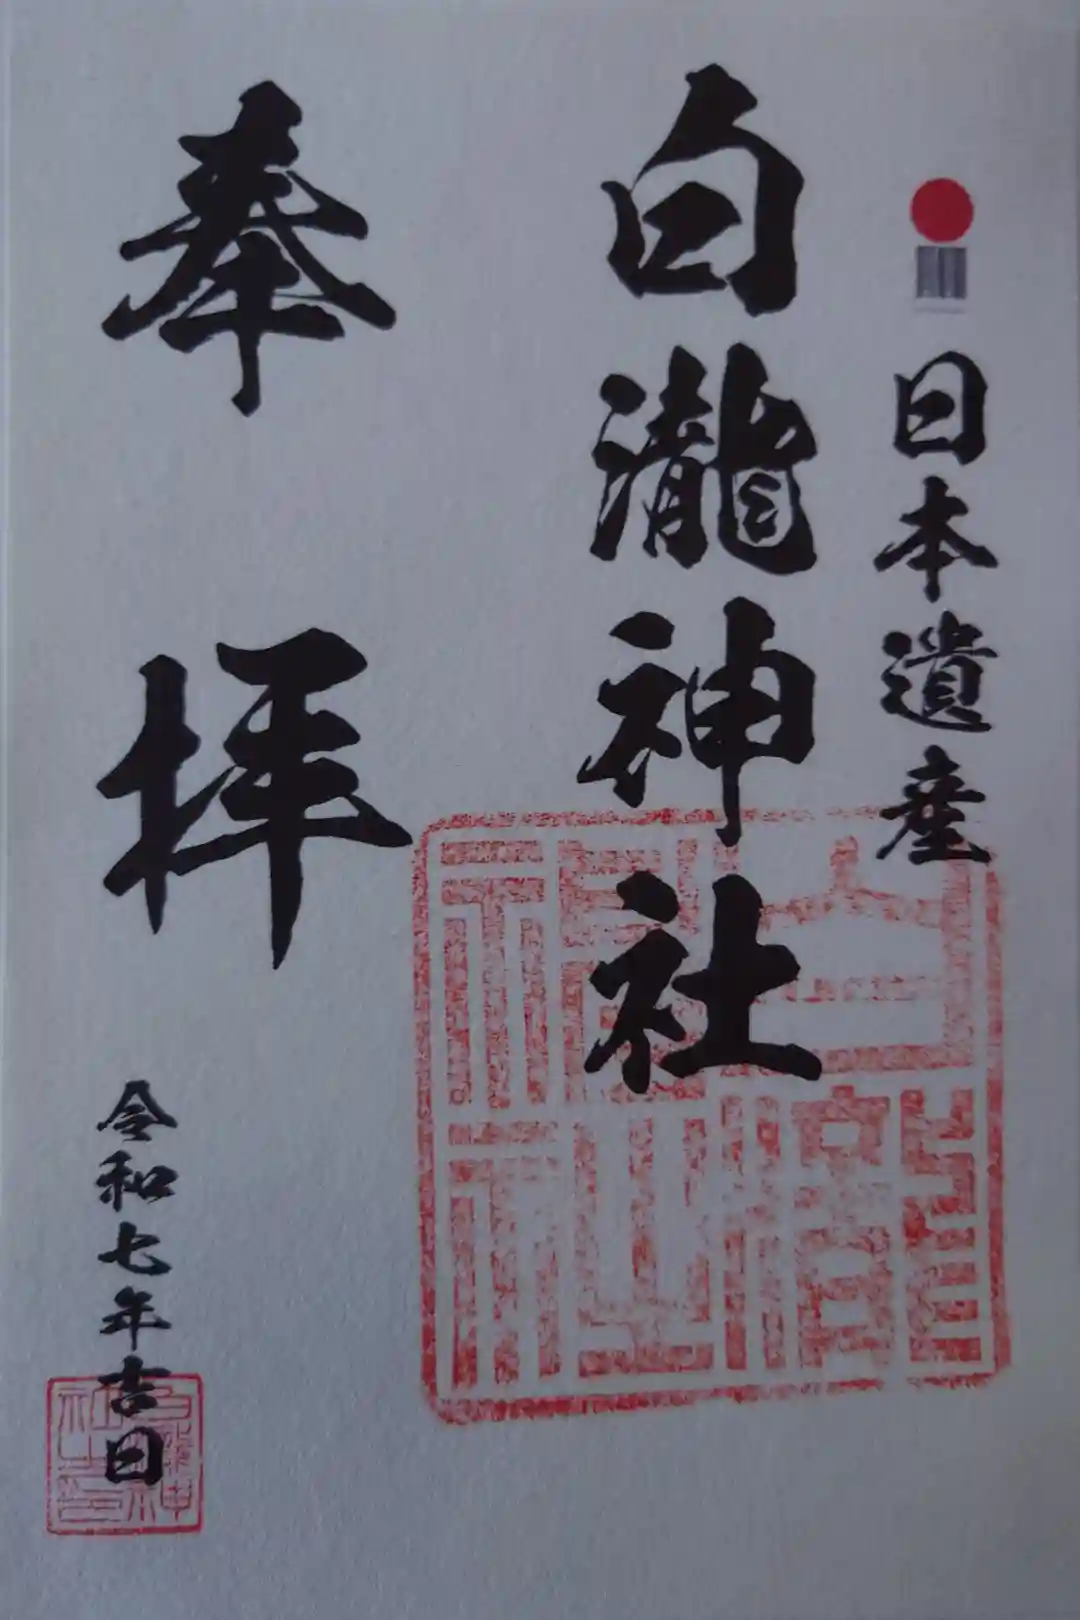 日本遺産
白瀧神社
奉拝
令和七年吉日
白瀧神社